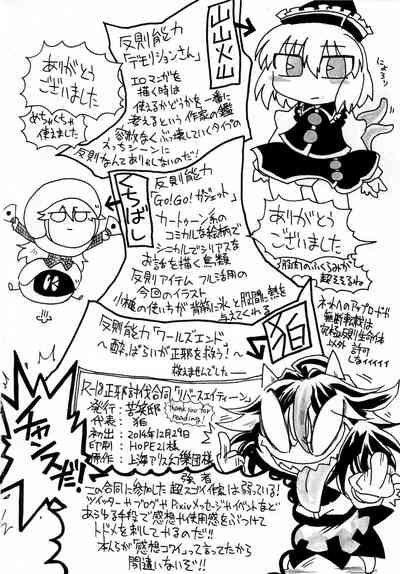 山山火山
反則能力
「デモリションさん」
エロマンガを
描く時は
使えるかどうかを一番に
考えるという作家の鑑
容赦なくぶっ壊していくタイプの
えっちシーンに
反則なんてありゃしないのだッ!
ありがとう
ございました
めちゃくちゃ
使えました
にょろ〜ッ
くちばし
反則能力
「Go!Go!ガジェット」
カートゥーン系の
コミカルな絵柄で
シニカルでシリアスな
お話を描く鳥類
反則アイテム フル活用の
今回のイラスト
小槌の使いちが背筋に氷と股間に熱を
与えてくれる
ありがとう
ございました
狛
反則能力「ワールズエンド」
〜酔っぱらいが正邪を救う!〜
救えませんでした――
ネット上へのアップロードや
無断転載は
究極反則生命体
以外 許可
しなイイイイイ
R-18正邪討伐合同「リバースエイティーン」
発行:苦笑邸
Thank you for
reading!
代表:狛
初出:2014年12月29日
印刷:HOPE21様
原作:上海アリス幻樂団様
チャンスだ!!
強者
この合同に参加した超スゴイ作家は弱っている!
ツイッターやブログやPixivメッセージやイベントなど
あらゆる手段で感想や使用感をぶつけて
トドメを刺してやるのだ!!
本人らが「感想コワイ」って言ってたから
間違いないるぞ!!